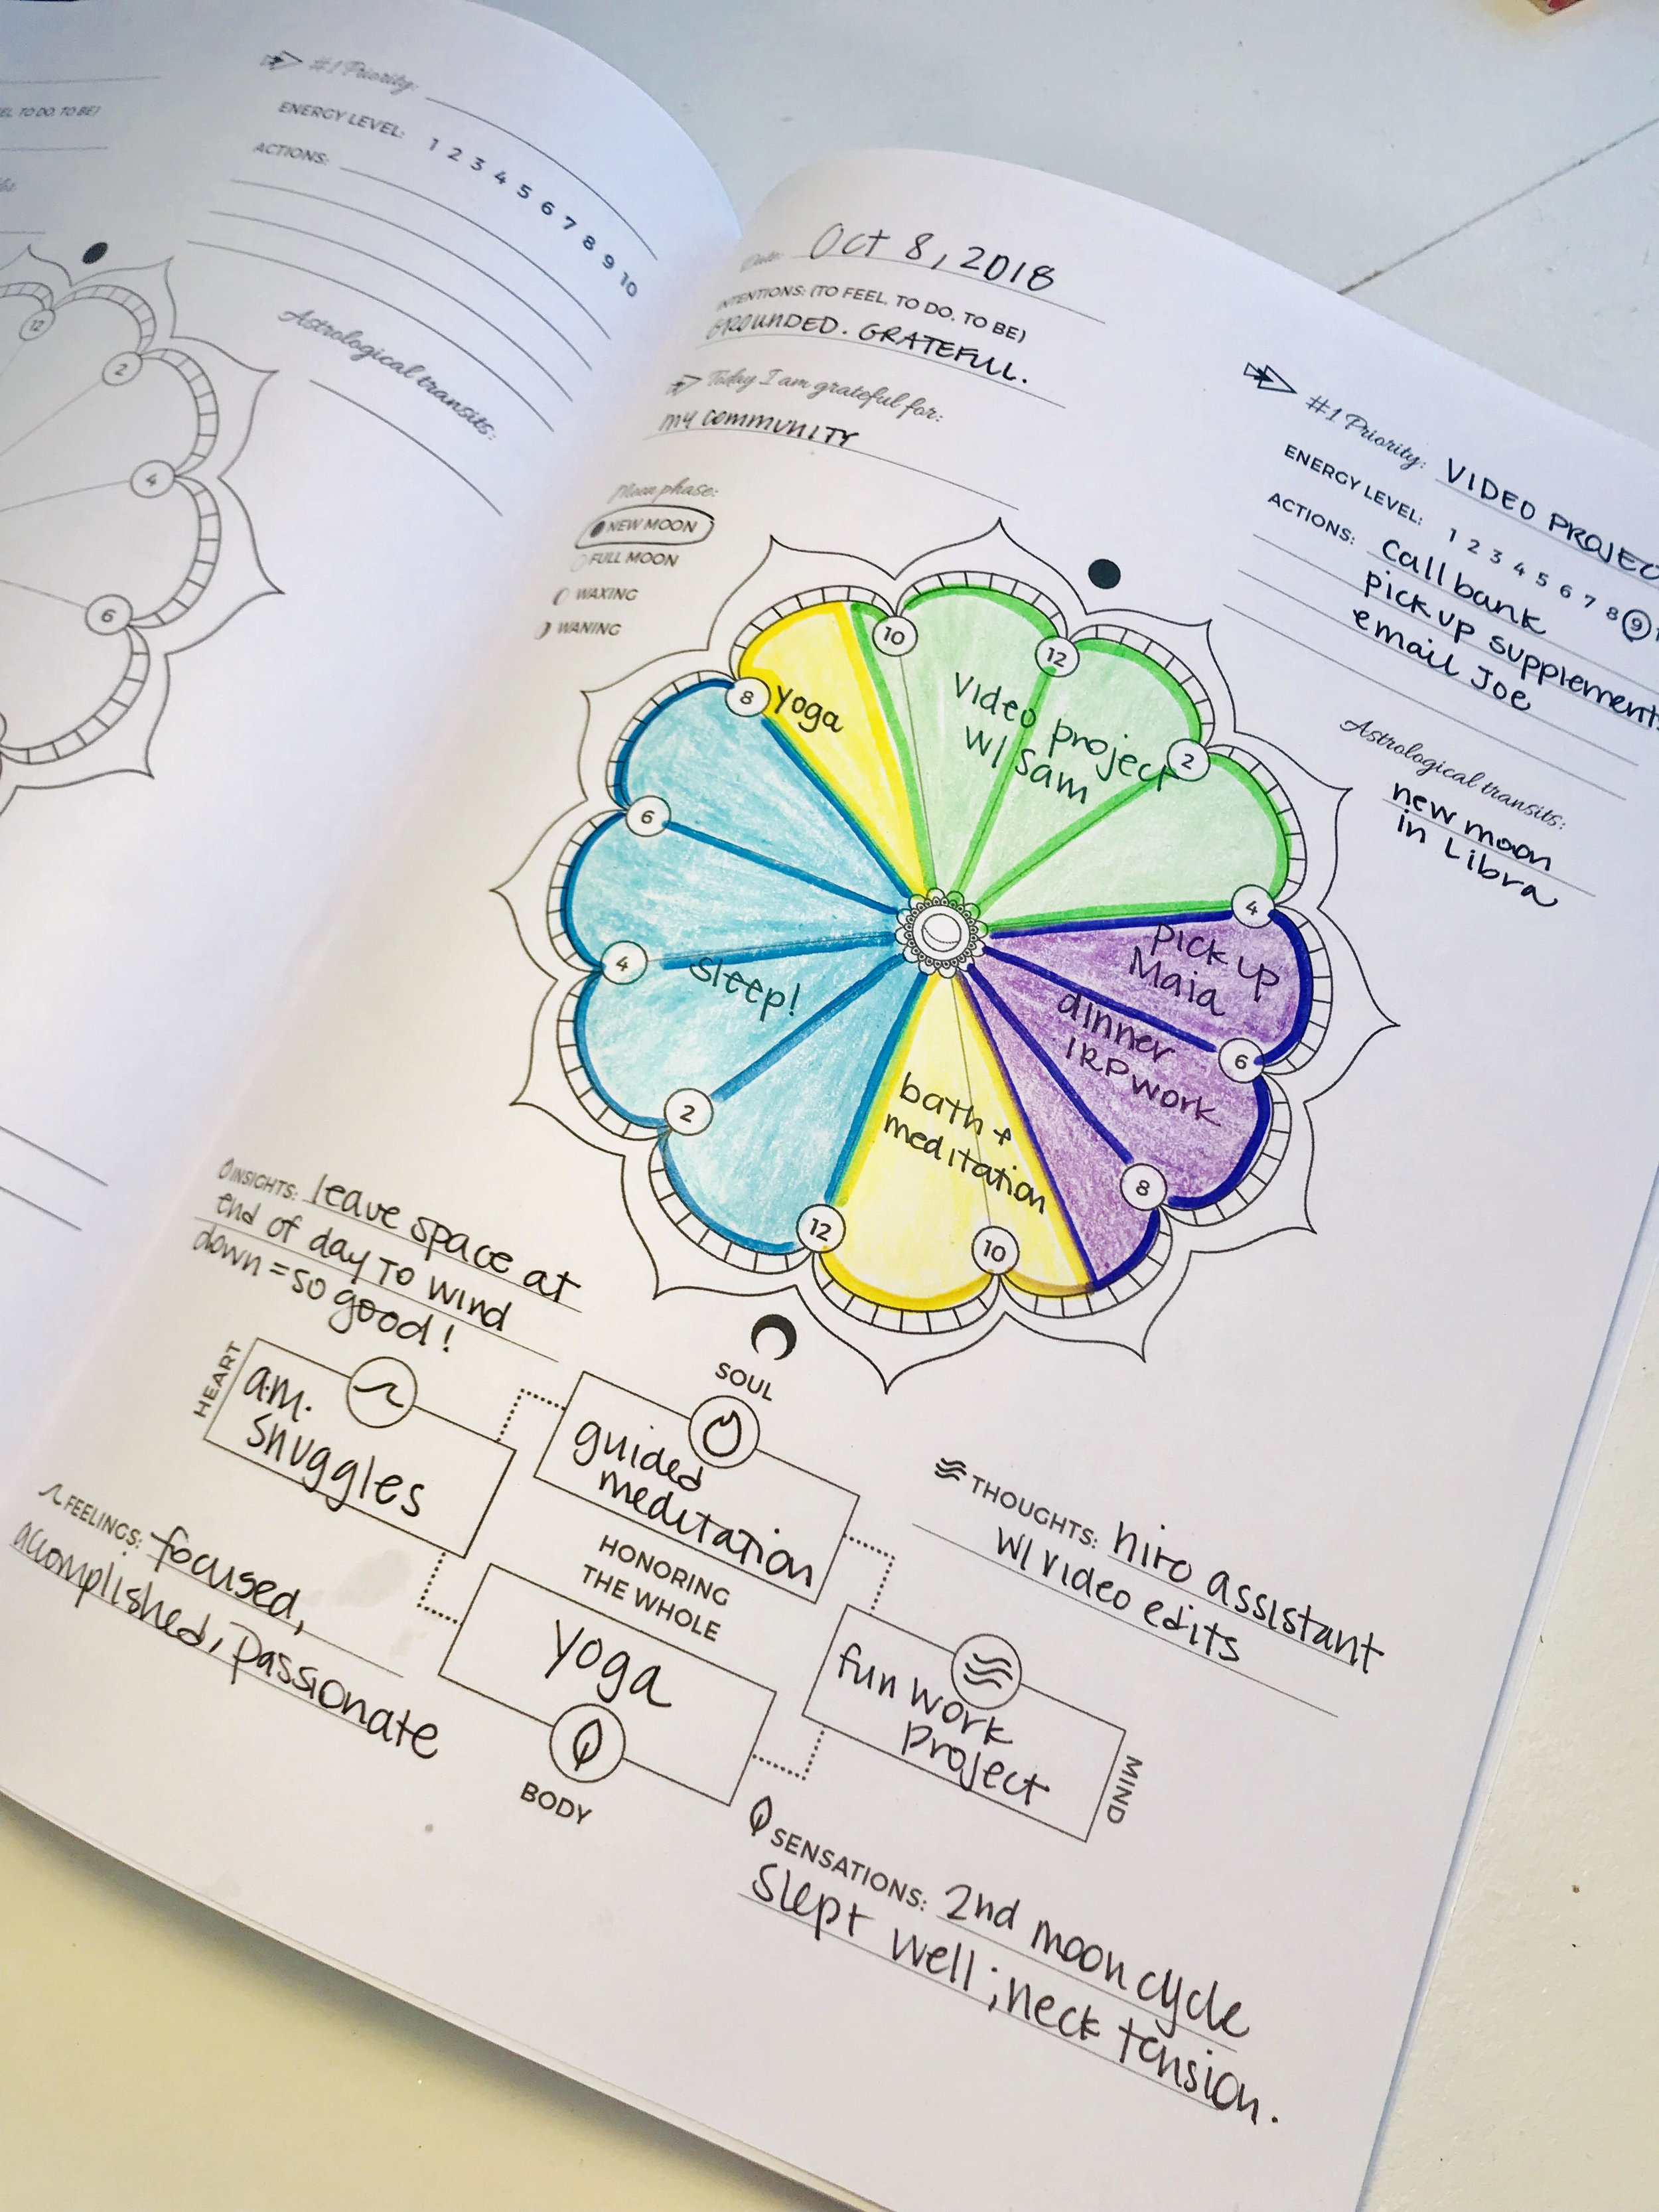 TO DO, TO BE)
#1 Priority:
ENERGY LEVEL: 1 2 3 4 5 6 7 8 9 10
ACTIONS:
Astrological transits:
12
2
4
6
Date: Oct 8, 2018
INTENTIONS: (TO FEEL, TO DO, TO BE)
GROUNDED. GRATEFUL.
Today I am grateful for:
my community
Moon phase:
NEW MOON
FULL MOON
WAXING
WANING
#1 Priority: VIDEO PROJEC
ENERGY LEVEL: 1 2 3 4 5 6 7 8 9 1
ACTIONS: Call bank
pick up supplements
email Joe
Astrological transits:
new moon
in Libra
10
12
2
4
6
8
10
12
2
4
6
8
Yoga
Video project
w/ Sam
pick up
Maia
dinner
IRP work
bath +
meditation
Sleep!
INSIGHTS: leave space at
end of day to wind
down = so good!
HEART
a.m.
snuggles
SOUL
guided
meditation
HONORING
THE WHOLE
yoga
BODY
fun work
project
MIND
FEELINGS: focused,
acomplished, passionate
THOUGHTS: hire assistant
w/ video edits
SENSATIONS: 2nd moon cycle
Slept well; neck tension.